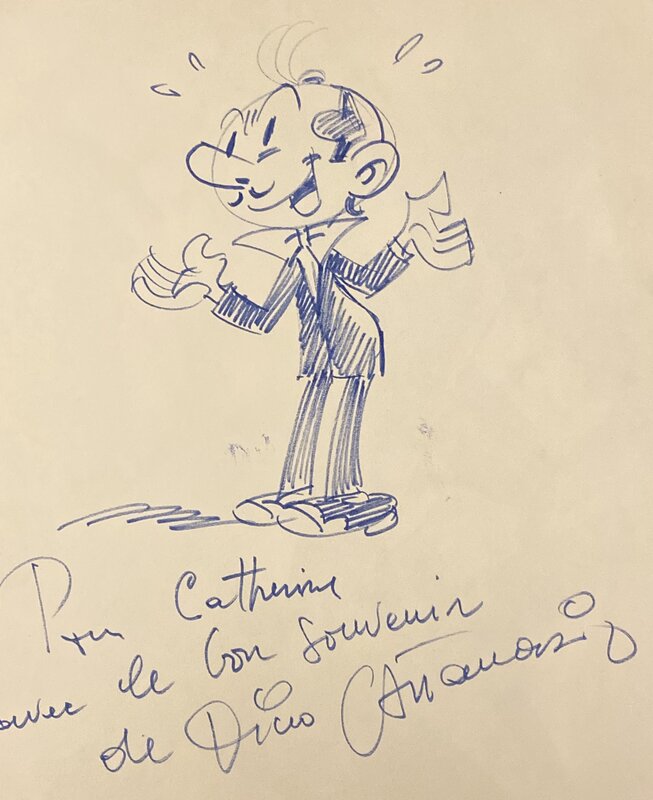 Pour Catherine
avec le bon souvenir
de Dino Attanasio